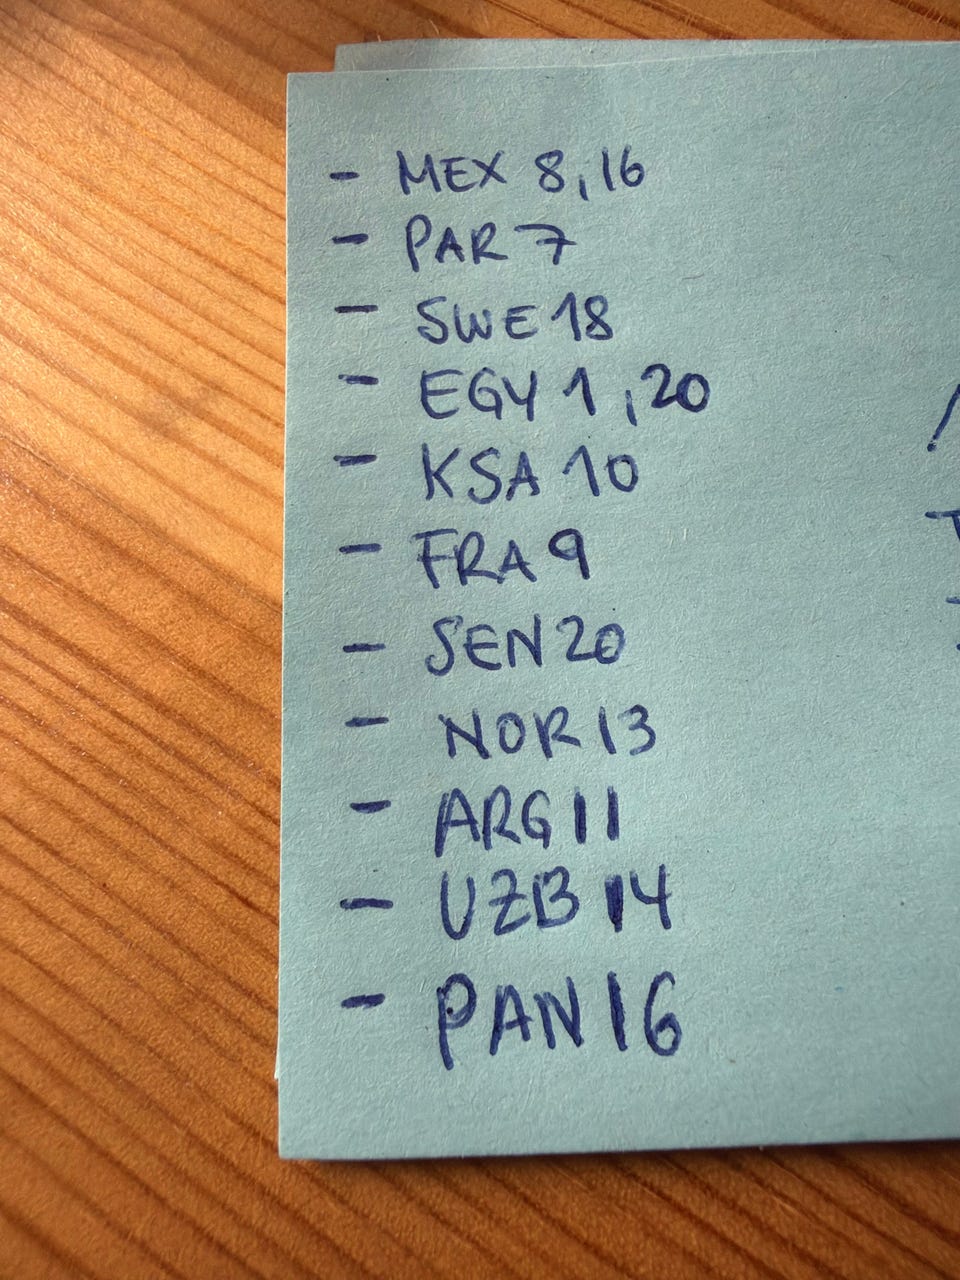 - MEX 8, 16
- PAR 7
- SWE 18
- EGY 1, 20
- KSA 10
- FRA 9
- SEN 20
- NOR 13
- ARG 11
- UZB 14
- PAN 16